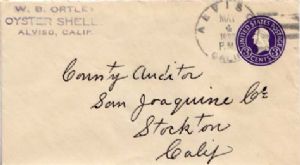 W. B. ORTLEY
OYSTER SHELL
ALVISO, CALIF.
ALVISO
MAY
4
P.M.
CALIF.
UNITED STATES POSTAGE
3 CENTS 3
County Auditor
San Joaquine Co
Stockton
Calif